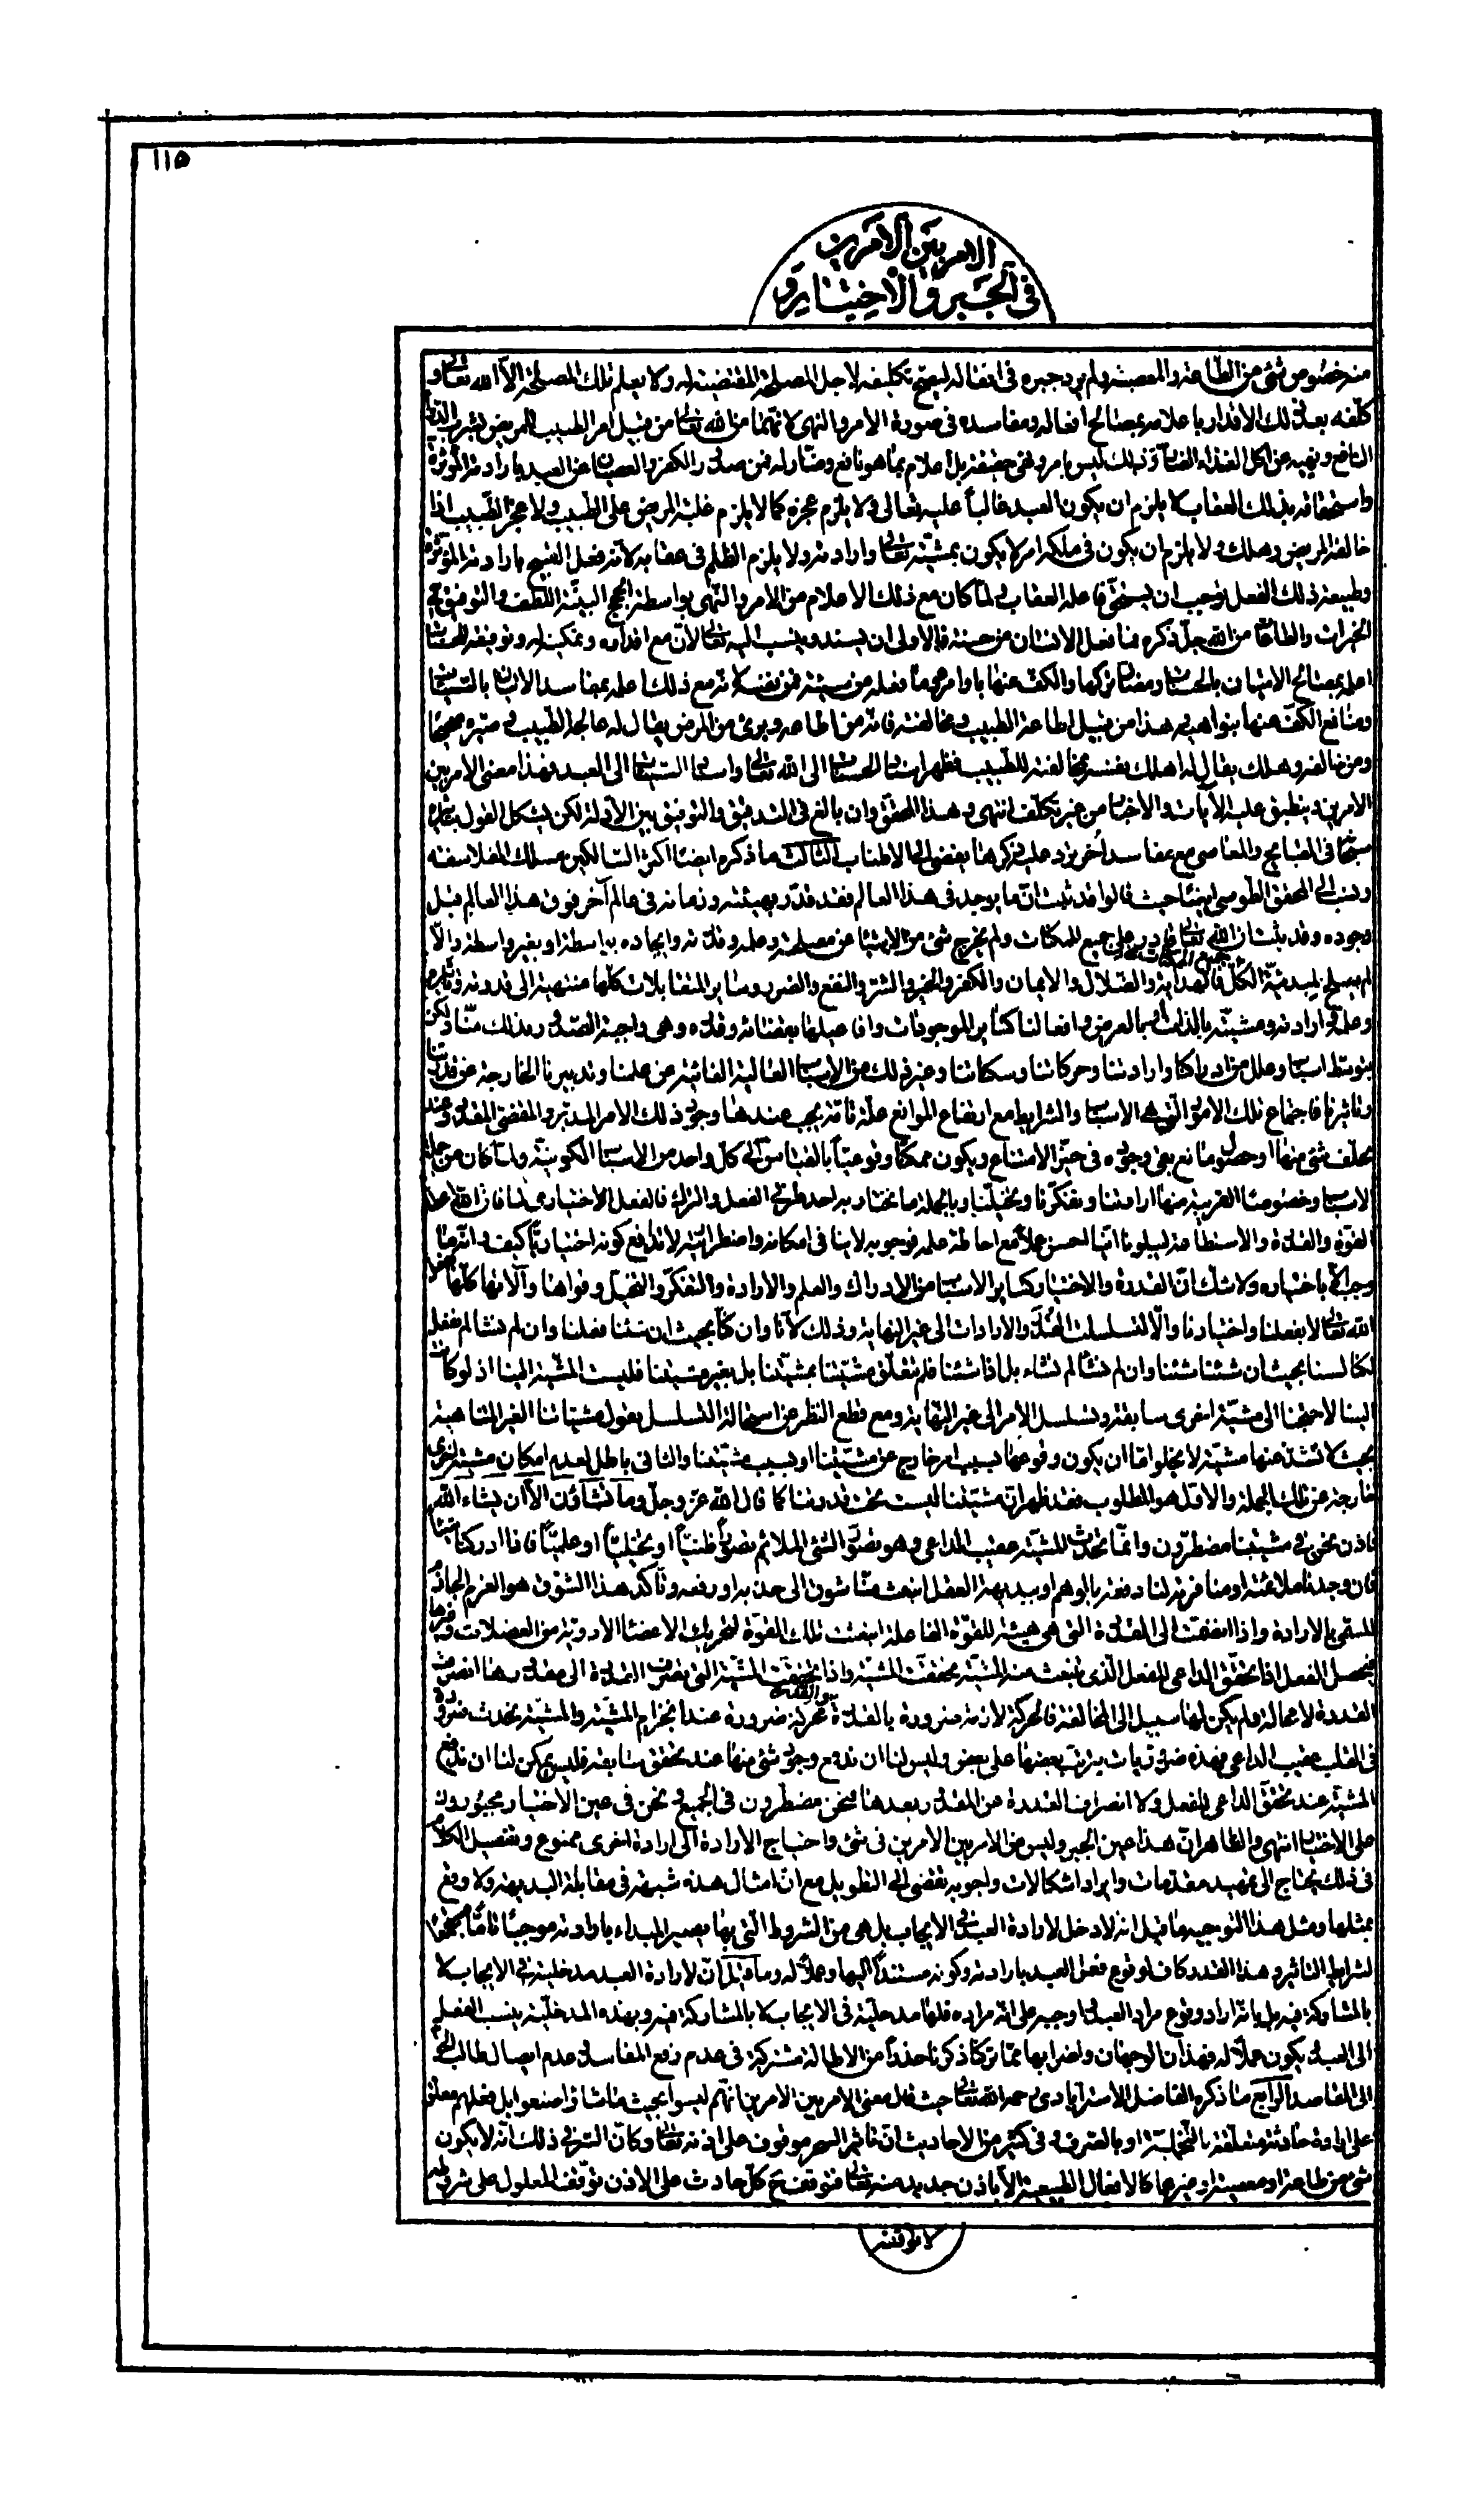 ١١٥
الامر بين الامرين
في الجبر والاختيار و
منه خصوص شئ من الطاعة والمعصية ولم يرد جبره في افعاله ليصح تكليفه لاجل المصلحة المقتضية له ولا يعلم تلك المصلحة الا الله تعالى و
كلفه بعد ذلك الاقدار باعلامه بمصالح افعاله ومفاسده في صورة الامر والنهى لانهما من الله تعالى من قبيل امر الطبيب للمريض بشرب الدواء
النافع ونهيه عن اكل الغذاء الضار وذلك ليس بامر ونهى حقيقة بل اعلام بما هو نافع وضار له فمن صدور الكفر والعصيان عن العبد بارادته المؤثرة
واستحقاقه بذلك العقاب لا يلزم ان يكون العبد غالبا عليه تعالى ولا يلزم عجزه كما لا يلزم غلبة المريض على الطبيب ولا عجز الطبيب اذا
خالفه المريض وهلك ولا يلزم ان يكون في ملكه امر لا يكون بمشيته تعالى وارادته ولا يلزم الظلم في عقابه لانه فعل القبيح بارادته المؤثرة
وطبيعة ذلك الفعل توجب ان يستحق فاعله العقاب ولما كان مع ذلك الاعلام من الامر والنهى بواسطة الحجج البينة اللطف والتوفيق في
الخيرات والطاعات من الله جل ذكره فما فعل الانسان من حسنة فالاولى ان يسند وينسب اليه تعالى لان مع اقداره وتمكينه له وتوفيقه للحسنات
اعلمه بمصالح الاتيان بالحسنات ومضار تركها والكف عنها باوامره وما فعله من سيئة فمن نفسه لانه مع ذلك اعلمه بمفاسد الاتيان بالسيئات
ومنافع الكف عنها بنواهيه وهذا من قبيل اطاعة الطبيب ومخالفته فانه من اطاعه وبرئ من المرض يقال له عالجه الطبيب وصيره صحيحا
ومن خالفه وهلك يقال له اهلك نفسه بمخالفته للطبيب فظهر اسناد الحسنات الى الله تعالى واسناد السيئات الى العبد فهذا معنى الامر بين
الامرين وينطبق عليه الآيات والاخبار من غير تكلف انتهى وهذا المحقق وان بالغ في التدقيق والتوفيق بين الادلة لكن يشكل القول بتاثيره
سبحانه في القبائح والمعاصي مع مفاسد أخر يرد عليه ذكرها يفضي الى الاطناب الثالث ما ذكره ايضا اكثر السالكين مسلك الفلاسفة
ونسب الى المحقق الطوسي ايضا حيث قالوا قد ثبت ان ما يوجد في هذا العالم فقد قدر بهيئته وزمانه في عالم آخر فوق هذا العالم قبل
وجوده وقد ثبت ان الله تعالى قادر على جميع الممكنات ولم يخرج شئ من الاشياء عن مصلحته وعلمه وقدرته وايجاده بواسطة او بغير واسطة والا
لم يصلح لمبدئية الكل فالهداية والضلال والايمان والكفر والخير والشر والنفع والضرر وسائر المتقابلات كلها منتهية الى قدرته وتاثيره
وعلمه وارادته ومشيته بالذات او بالعرض وافعالنا كسائر الموجودات وافاعيلها بقضائه وقدره وهي واجبة الصدور بذلك منا ولكن
بتوسط اسباب وعلل من ادراكنا وارادتنا وحركاتنا وسكناتنا وغير ذلك من الاسباب العالية الغائبة عن علمنا وتدبيرنا الخارجة عن قدرتنا
وتاثيرنا فاجتماع تلك الامور التي هي الاسباب والشرايط مع ارتفاع الموانع علة تامة يجب عندها وجود ذلك الامر المدبر والمقضى المقدر وعند
تخلف شئ منها او حصول مانع بقى وجوده في حيز الامتناع ويكون ممكنا وقوعيا بالقياس الى كل واحد من الاسباب الكونية ولما كان من جملة
الاسباب وخصوصا القريبة منها ارادتنا وتفكرنا وتخيلنا وبالجملة ما نختار به احد طرفي الفعل والترك فالفعل الاختياري لنا فان الله اعطانا
القوة والقدرة والاستطاعة ليبلونا اينا احسن عملا مع احاطة علمه فوجوبه لا ينافي امكانه واضطراريته لا تدافع كونه اختياريا كيف وانه ما
وجب الا باختياره ولا شك ان القدرة والاختيار كسائر الاسباب من الادراك والعلم والارادة والتفكر والتخيل وقواها وآلاتها كلها بفعل
الله تعالى لا بفعلنا واختيارنا والا لتسلسلت القدر والارادات الى غير النهاية وذلك لانا وان كنا بحيث ان شئنا فعلنا وان لم نشأ لم نفعل
لكنا لسنا بحيث ان شئنا شئنا وان لم نشأ لم نشاء بل اذا شئنا فلم تتعلق مشيتنا بمشيتنا بل بغير مشيتنا فليست المشية الينا اذ لو كانت
الينا لاحتجنا الى مشية اخرى سابقة وتسلسل الامر الى غير النهاية ومع قطع النظر عن استحالة التسلسل نقول مشياتنا الغير المتناهية
بحيث لا تشذ عنها مشية لا يخلو اما ان يكون وقوعها بسبب امر خارج عن مشيتنا او بسبب مشيتنا والثاني باطل لعدم امكان مشية اخرى
خارجة عن تلك الجملة والاول هو المطلوب فقد ظهر ان مشيتنا ليست تحت قدرتنا كما قال الله عز وجل وما تشاؤن الا ان يشاء الله
فاذن نحن في مشيتنا مضطرون وانما تحدث المشية عقيب الداعى وهو تصور الشئ الملائم تصورا ظنيا او تخيليا او علميا فاذا ادركنا شيئا
فان وجدنا ملائمته او منافرته لنا دفعة بالوهم او ببديهة العقل انبعث منا شوق الى جذبه او دفعه وتأكد هذا الشوق هو العزم الجازم
المسمى بالارادة واذا انضمت الى القدرة التي هي هيئة للقوة الفاعلة انبعثت تلك القوة لتحريك الاعضاء الادوية من العضلات وغيرها
فيحصل الفعل فاذا تحقق الداعى للفعل الذي تنبعث منه المشية تحققت المشية واذا تحققت المشية التي تصرف القدرة الى مقدورها انصرفت
القدرة لا محالة ولم يكن لها سبيل الى المخالفة فالحركة لازمة ضرورة بالقدرة والقدرة محركة ضرورة عند انجزام المشية والمشية تحدث ضرورة
في القلب عقيب الداعى فهذه ضروريات يترتب بعضها على بعض وليس لنا ان ندفع وجود شئ منها عند تحقق سابقه فليس يمكن لنا ان ندفع
المشية عند تحقق الداعى للفعل ولا انصراف القدرة عن المقدور بعدها فنحن مضطرون في الجميع ونحن في عين الاختيار مجبورون
على الاختيار انتهى والظاهر ان هذا عين الجبر وليس من الامر بين الامرين في شئ واحتياج الارادة الى ارادة اخرى ممنوع وتفصيل الكلام
في ذلك يحتاج الى تمهيد مقدمات وايراد اشكالات واجوبة تفضي الى التطويل مع ان امثال هذه شبهة في مقابلة البديهة ولا وقع
بمثلها ومثل هذا التوجيه ما قيل انه لا دخل لارادة العبد في الايجاب بل هي من الشروط التي بها يصير المبداء بارادته موجبا تاما مستجمعا
لشرايط التاثير وهذا القدر كاف لوقوع فعل العبد بارادته وكونه مستندا اليها وعملا له وما قيل ان لارادة العبد مدخلية في الايجاب لا
بالمشاركة فيه بل بانه اراد وقوع مراد العبد واوجبه على انه مراده فلها مدخلية في الايجاب لا بالمشاركة فيه وبهذه المدخلية ينسب الفعل
الى العبد ويكون عملا له فهذان الوجهان واضرابهما مما تركنا ذكرنا حذرا من الاطالة مشتركة في عدم رفع المفاسد وعدم ايصال طالب الحق
الى المقاصد الرابع ما ذكره الفاضل الاسترآبادى رحمه الله تعالى حيث قال معنى الامر بين الامرين انهم ليسوا بحيث ما شاؤا صنعوا بل فعلهم معلق
على ارادة حادثة متعلقة بالتخلية او بالصرف وفي كثير من الاحاديث ان تاثير السحر موقوف على اذنه تعالى وكان السر في ذلك انه لا يكون
شئ من طاعة او معصية او غيرها كالافعال الطبيعية الا باذن جديد منه تعالى فتوقف ح كل حادث على الاذن توقف المعلول على شرطه
لا توقفه